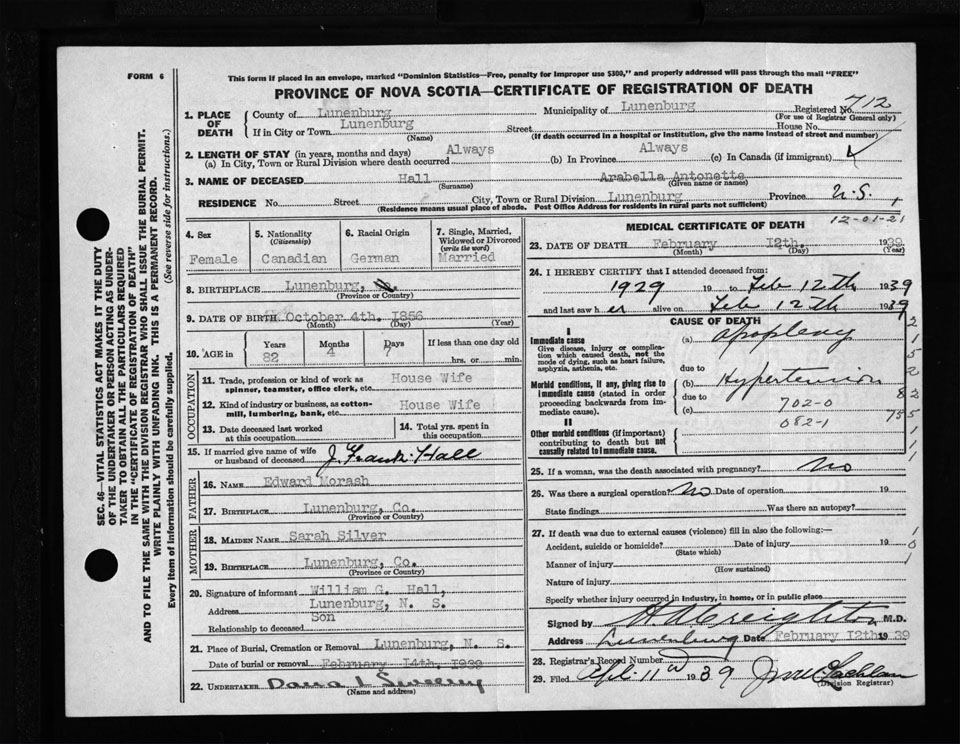 FORM 6
This form if placed in an envelope, marked "Dominion Statistics—Free, penalty for improper use $300," and properly addressed will pass through the mail "FREE"
PROVINCE OF NOVA SCOTIA—CERTIFICATE OF REGISTRATION OF DEATH
SEC. 46—VITAL STATISTICS ACT MAKES IT THE DUTY
OF THE UNDERTAKER OR PERSON ACTING AS UNDER-
TAKER TO OBTAIN ALL THE PARTICULARS REQUIRED
IN THE "CERTIFICATE OF REGISTRATION OF DEATH"
AND TO FILE THE SAME WITH THE DIVISION REGISTRAR WHO SHALL ISSUE THE BURIAL PERMIT.
WRITE PLAINLY WITH UNFADING INK. THIS IS A PERMANENT RECORD.
Every item of Information should be carefully supplied. (See reverse side for instructions.)
1. PLACE OF DEATH
County of Lunenburg Municipality of Lunenburg Registered No. 712
(For use of Registrar General only)
If in City or Town Lunenburg Street House No.
(Name) (If death occurred in a hospital or institution, give the name instead of street and number)
2. LENGTH OF STAY (in years, months and days)
(a) In City, Town or Rural Division where death occurred Always (b) In Province Always (c) In Canada (if immigrant)
3. NAME OF DECEASED Hall Arabella Antonette
(Surname) (Given name or names)
RESIDENCE No. Street City, Town or Rural Division Lunenburg Province N.S.
(Residence means usual place of abode. Post Office Address for residents in rural parts not sufficient)
4. Sex Female
5. Nationality (Citizenship) Canadian
6. Racial Origin German
7. Single, Married, Widowed or Divorced (write the word) Married
8. BIRTHPLACE Lunenburg,
(Province or Country)
9. DATE OF BIRTH October 4th. 1856
(Month) (Day) (Year)
10. AGE in Years 82 Months 4 Days 7 If less than one day old hrs. or min.
OCCUPATION
11. Trade, profession or kind of work as spinner, teamster, office clerk, etc. House Wife
12. Kind of industry or business, as cotton-mill, lumbering, bank, etc. House Wife
13. Date deceased last worked at this occupation
14. Total yrs. spent in this occupation
15. If married give name of wife or husband of deceased J. Frank Hall
FATHER
16. NAME Edward Morash
17. BIRTHPLACE Lunenburg, Co.
(Province or Country)
MOTHER
18. MAIDEN NAME Sarah Silver
19. BIRTHPLACE Lunenburg, Co.
(Province or Country)
20. Signature of informant William G. Hall,
Address Lunenburg, N. S.
Relationship to deceased Son
21. Place of Burial, Cremation or Removal Lunenburg, N. S.
Date of burial or removal February 14th. 1939
22. UNDERTAKER
(Name and address)
12-01-21
MEDICAL CERTIFICATE OF DEATH
23. DATE OF DEATH February 12th. 1939
(Month) (Day)
24. I HEREBY CERTIFY that I attended deceased from:
1929 19 to Feb 12th 1939
and last saw her alive on Feb 12th 1939
CAUSE OF DEATH
I
Immediate cause
Give disease, injury or complication which caused death, not the mode of dying, such as heart failure, asphyxia, asthenia, etc.
(a) Apoplexy
due to
Morbid conditions, if any, giving rise to immediate cause (stated in order proceeding backwards from immediate cause).
(b) Hypertension
due to 702-0
(c) 082-1
II
Other morbid conditions (if important) contributing to death but not causally related to immediate cause.
25. If a woman, was the death associated with pregnancy? No
26. Was there a surgical operation? No Date of operation 19
State findings Was there an autopsy?
27. If death was due to external causes (violence) fill in also the following:—
Accident, suicide or homicide? Date of injury 19
(State which)
Manner of injury
(How sustained)
Nature of injury
Specify whether injury occurred in industry, in home, or in public place
Signed by H A Creighton M.D.
Address Lunenburg Date February 12th 1939
28. Registrar's Record Number
29. Filed Apl. 11th 1939
(Division Registrar)